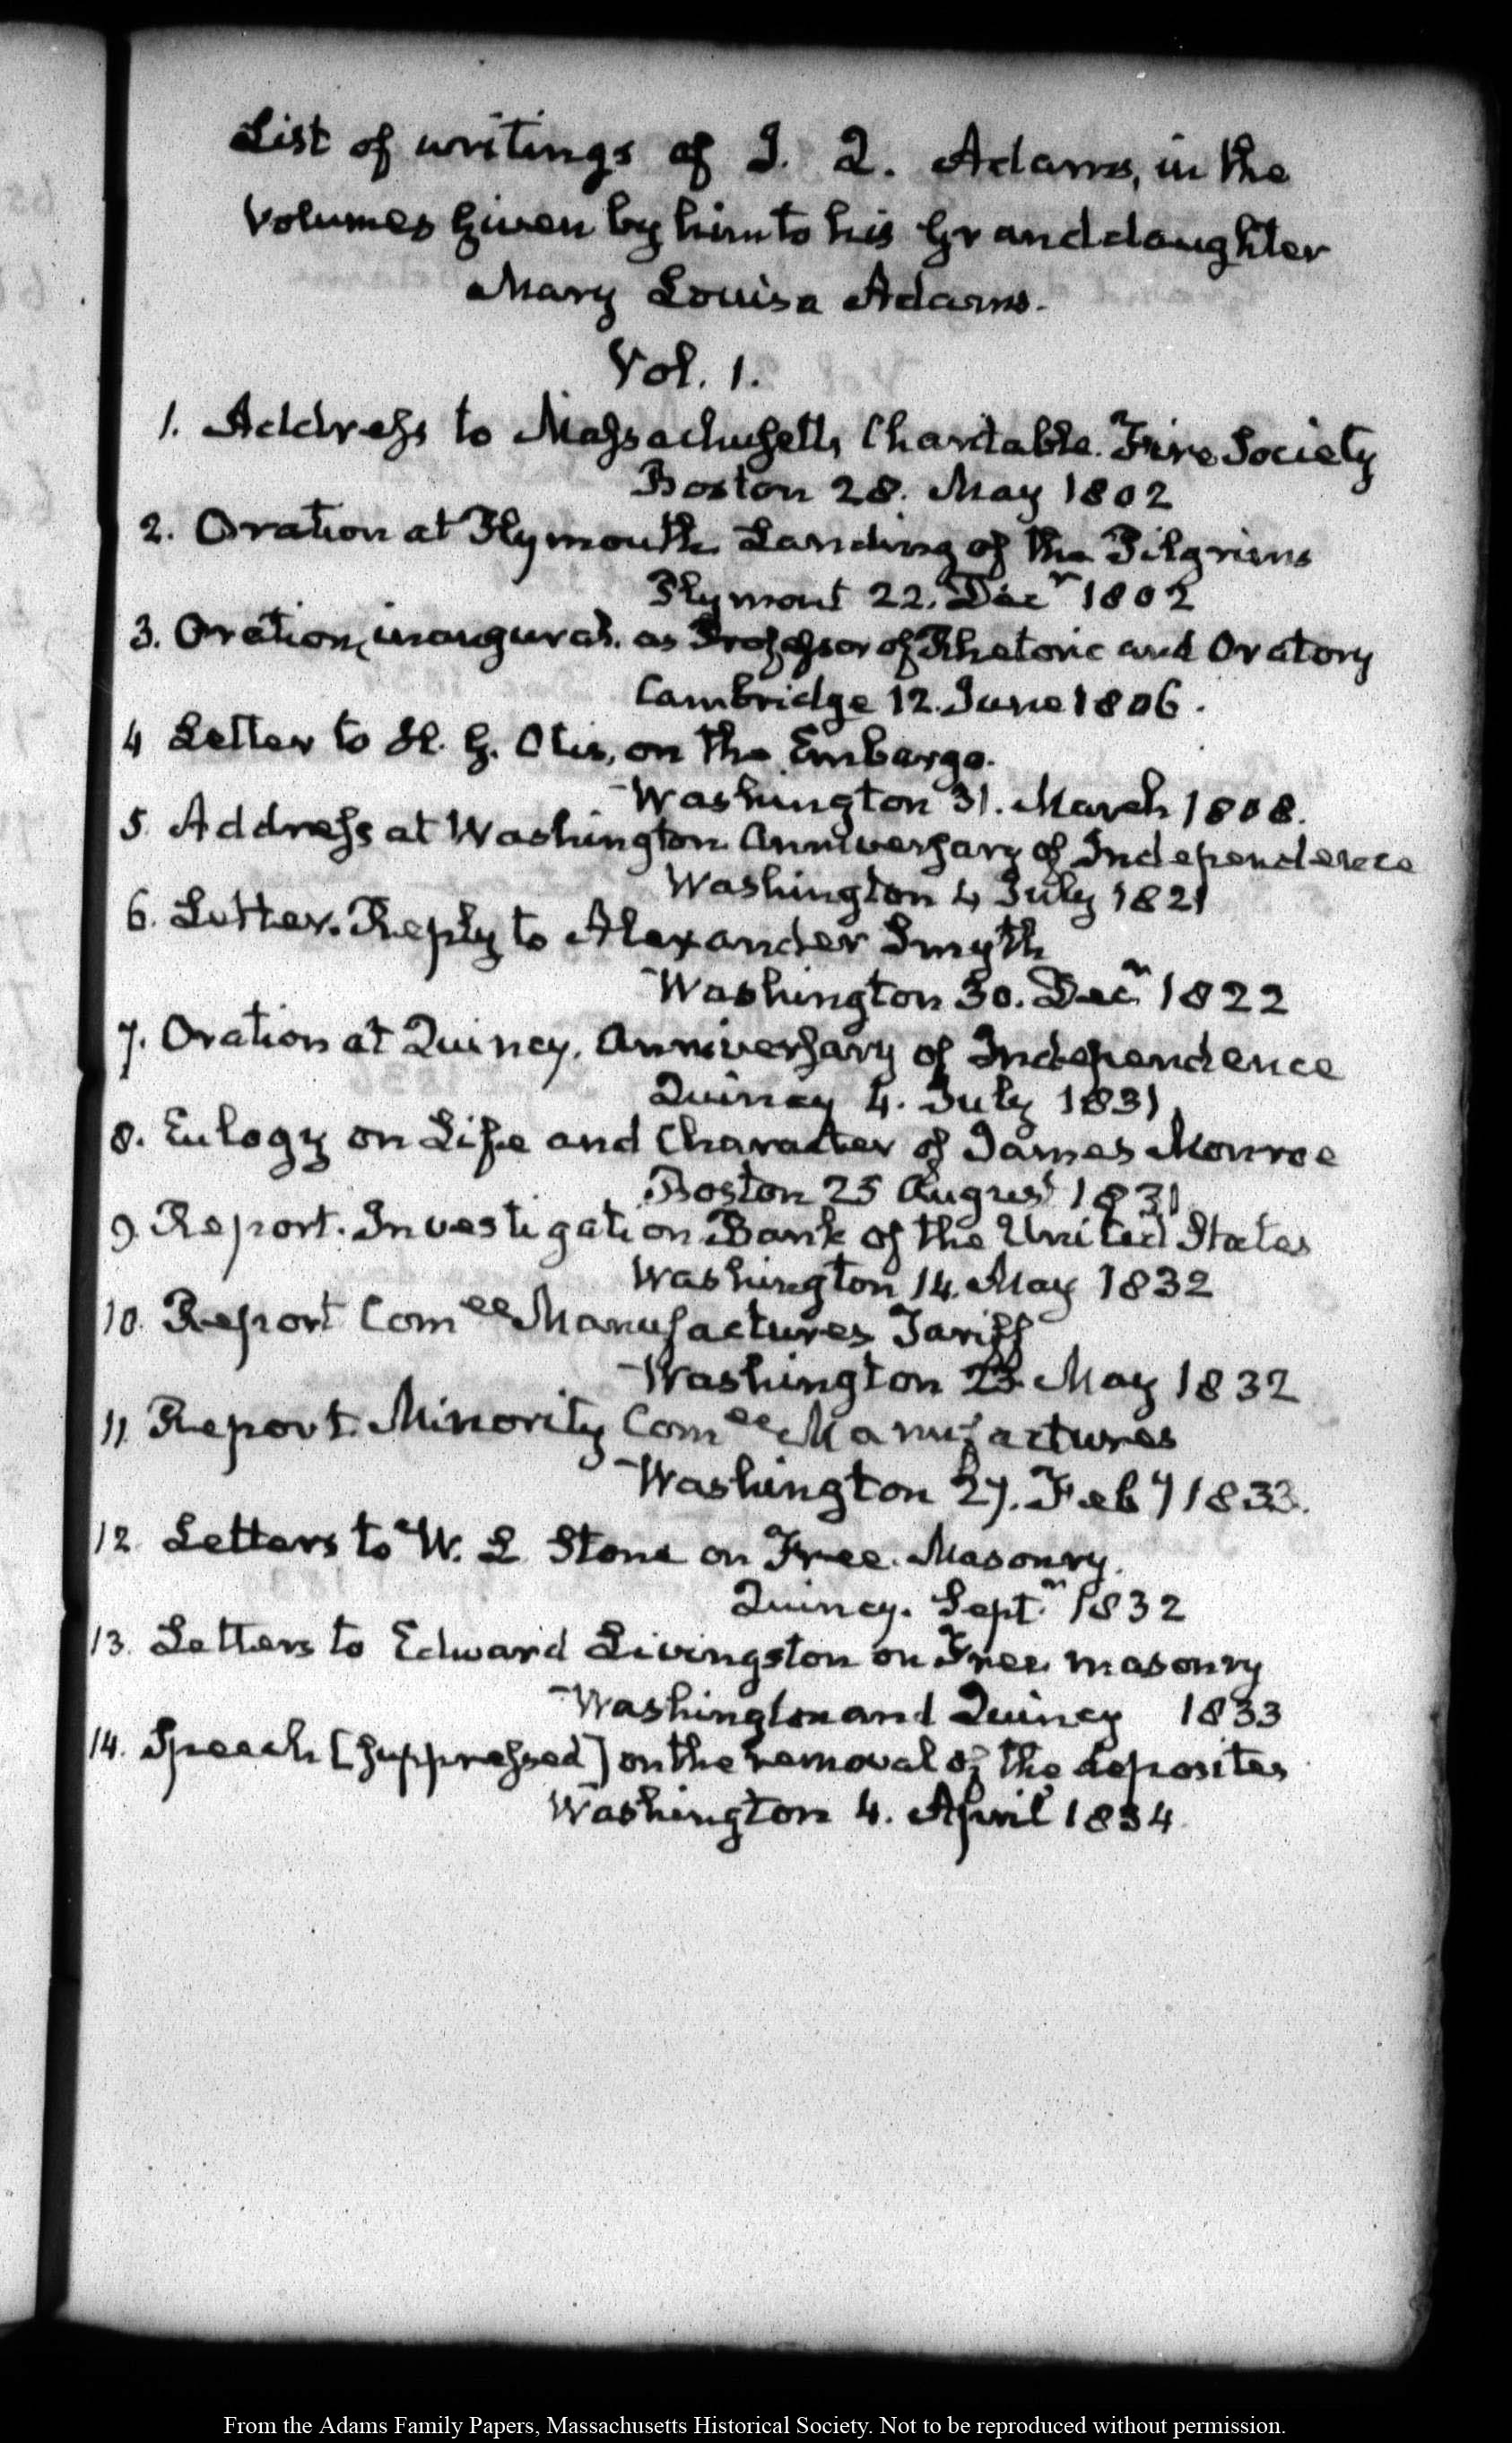 List of writings of J. Q. Adams, in the
Volumes given by him to his Granddaughter
Mary Louisa Adams.
Vol. 1.
1. Address to Massachusetts Charitable Fire Society
Boston 28. May 1802
2. Oration at Plymouth Landing of the Pilgrims
Plymout 22. Decr 1802
3. Oration, inaugural. as Professor of Rhetoric and Oratory
Cambridge 12. June 1806.
4 Letter to H. G. Otis, on the Embargo.
Washington 31. March 1808.
5. Address at Washington Anniversary of Independence
Washington 4 July 1821
6. Letter. Reply to Alexander Smyth
Washington 30. Decr 1822
7. Oration at Quincy, Anniversary of Independence
Quincy 4. July 1831
8. Eulogy on Life and Character of James Monroe
Boston 25 August 1831
9. Report. Investigation Bank of the United States
Washington 14. May 1832
10. Report Comee Manufactures Tariff
Washington 23. May 1832
11. Report Minority Comee Manufactures
Washington 27. Feby 1833.
12. Letters to W. L Stone on Free. Masonry.
Quincy. Septr 1832
13. Letters to Edward Livingston on Free masonry
Washington and Quincy 1833
14. Speech [suppressed] on the removal of the deposites
Washington 4. April 1834
From the Adams Family Papers, Massachusetts Historical Society. Not to be reproduced without permission.